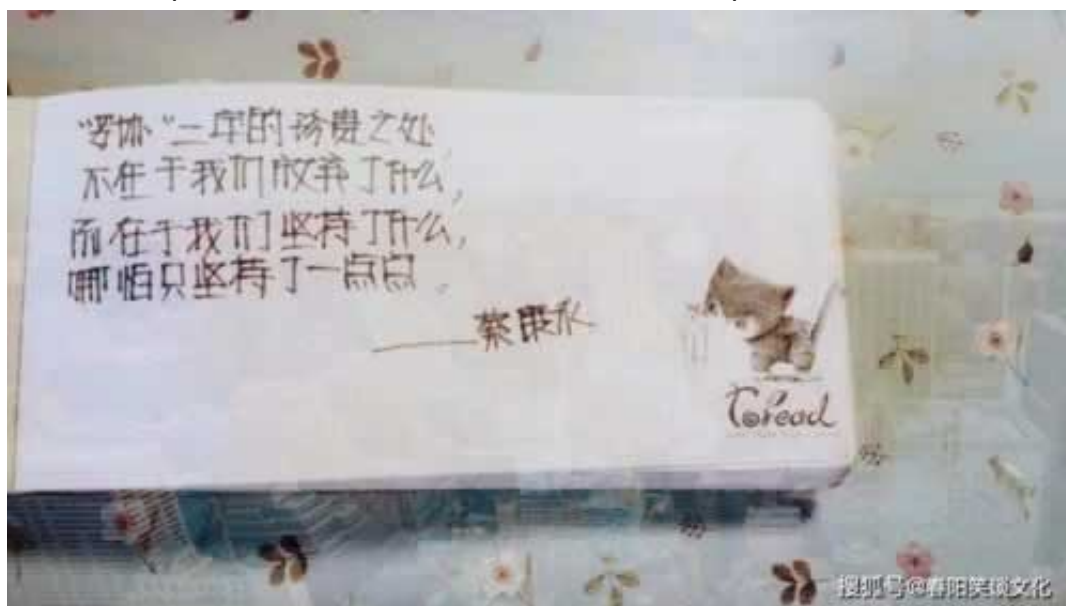 “字体”二字的珍贵之处
不在于我们放弃了什么，
而在于我们坚持了什么，
哪怕只坚持了一点点。
——蔡康永
Toread
搜狐号@春阳笑谈文化